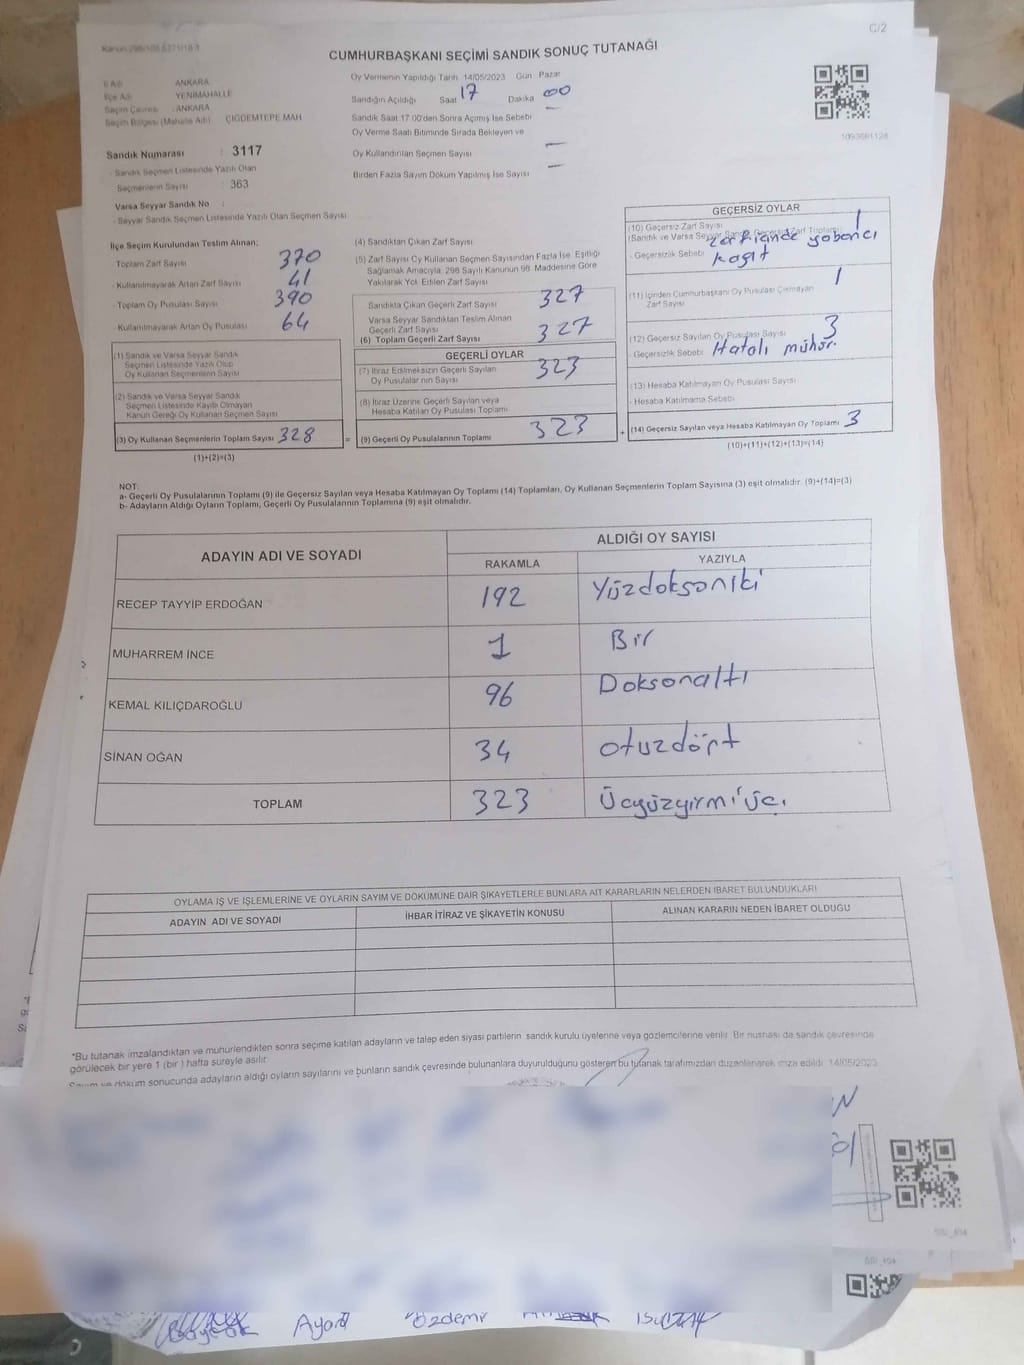 C/2
CUMHURBAŞKANI SEÇİMİ SANDIK SONUÇ TUTANAĞI
İl Adı ANKARA
İlçe Adı YENİMAHALLE
Seçim Çevresi : ANKARA
Seçim Bölgesi (Mahalle Adı) ÇİĞDEMTEPE MAH
Sandık Numarası : 3117
- Sandık Seçmen Listesinde Yazılı Olan
Seçmenlerin Sayısı : 363
Varsa Seyyar Sandık No :
- Seyyar Sandık Seçmen Listesinde Yazılı Olan Seçmen Sayısı
Oy Vermenin Yapıldığı Tarih 14/05/2023 Gün Pazar
Sandığın Açıldığı Saat 17 Dakika 00
Sandık Saat 17.00'den Sonra Açımış İse Sebebi —
Oy Verme Saati Bitiminde Sırada Bekleyen ve
Oy Kullandırılan Seçmen Sayısı —
Birden Fazla Sayım Döküm Yapılmış İse Sayısı —
1093681128
İlçe Seçim Kurulundan Teslim Alınan;
Toplam Zarf Sayısı 370
- Kullanılmayarak Artan Zarf Sayısı 41
Toplam Oy Pusulası Sayısı 390
- Kullanılmayarak Artan Oy Pusulası 64
(1) Sandık ve Varsa Seyyar Sandık
Seçmen Listesinde Yazılı Olup
Oy Kullanan Seçmenlerin Sayısı
(2) Sandık ve Varsa Seyyar Sandık
Seçmen Listesinde Kayıtlı Olmayan
Kanun Gereği Oy Kullanan Seçmen Sayısı
(3) Oy Kullanan Seçmenlerin Toplam Sayısı 328
(1)+(2)=(3)
(4) Sandıktan Çıkan Zarf Sayısı
(5) Zarf Sayısı Oy Kullanan Seçmen Sayısından Fazla İse, Eşitliği
Sağlamak Amacıyla, 298 Sayılı Kanunun 98. Maddesine Göre
Yakılarak Yok Edilen Zarf Sayısı
Sandıkta Çıkan Geçerli Zarf Sayısı 327
Varsa Seyyar Sandıktan Teslim Alınan
Geçerli Zarf Sayısı
(6) Toplam Geçerli Zarf Sayısı 327
GEÇERLİ OYLAR
(7) İtiraz Edilmeksizin Geçerli Sayılan
Oy Pusulalarının Sayısı 323
(8) İtiraz Üzerine Geçerli Sayılan veya
Hesaba Katılan Oy Pusulası Toplamı
= (9) Geçerli Oy Pusulalarının Toplamı 323
GEÇERSİZ OYLAR
(10) Geçersiz Zarf Sayısı 1
(Sandık ve Varsa Seyyar Sandık Geçersiz Zarf Toplamı)
- Geçersizlik Sebebi zarf içinde yabancı
kağıt
(11) İçinden Cumhurbaşkanı Oy Pusulası Çıkmayan
Zarf Sayısı 1
(12) Geçersiz Sayılan Oy Pusulası Sayısı 3
- Geçersizlik Sebebi Hatalı mühür.
(13) Hesaba Katılmayan Oy Pusulası Sayısı
- Hesaba Katılmama Sebebi
+ (14) Geçersiz Sayılan veya Hesaba Katılmayan Oy Toplamı 3
(10)+(11)+(12)+(13)=(14)
NOT:
a- Geçerli Oy Pusulalarının Toplamı (9) ile Geçersiz Sayılan veya Hesaba Katılmayan Oy Toplamı (14) Toplamları, Oy Kullanan Seçmenlerin Toplam Sayısına (3) eşit olmalıdır. (9)+(14)=(3)
b- Adayların Aldığı Oyların Toplamı, Geçerli Oy Pusulalarının Toplamına (9) eşit olmalıdır.
ADAYIN ADI VE SOYADI ALDIĞI OY SAYISI
RAKAMLA YAZIYLA
RECEP TAYYİP ERDOĞAN 192 Yüzdoksaniki
MUHARREM İNCE 1 Bir
KEMAL KILIÇDAROĞLU 96 Doksanaltı
SİNAN OĞAN 34 otuzdört
TOPLAM 323 Üçyüzyirmiüç.
OYLAMA İŞ VE İŞLEMLERİNE VE OYLARIN SAYIM VE DÖKÜMÜNE DAİR ŞİKAYETLERLE BUNLARA AİT KARARLARIN NELERDEN İBARET BULUNDUKLARI
ADAYIN ADI VE SOYADI İHBAR İTİRAZ VE ŞİKAYETİN KONUSU ALINAN KARARIN NEDEN İBARET OLDUĞU
*Bu tutanak imzalandıktan ve mühürlendikten sonra seçime katılan adayların ve talep eden siyasi partilerin sandık kurulu üyelerine veya gözlemcilerine verilir. Bir nüshası da sandık çevresinde
görülecek bir yere 1 (bir) hafta süreyle asılır.
Sayım ve döküm sonucunda adayların aldığı oyların sayılarını ve bunların sandık çevresinde bulunanlara duyurulduğunu gösteren bu tutanak tarafımızdan düzenlenerek imza edildi. 14/05/2023
Özdemir